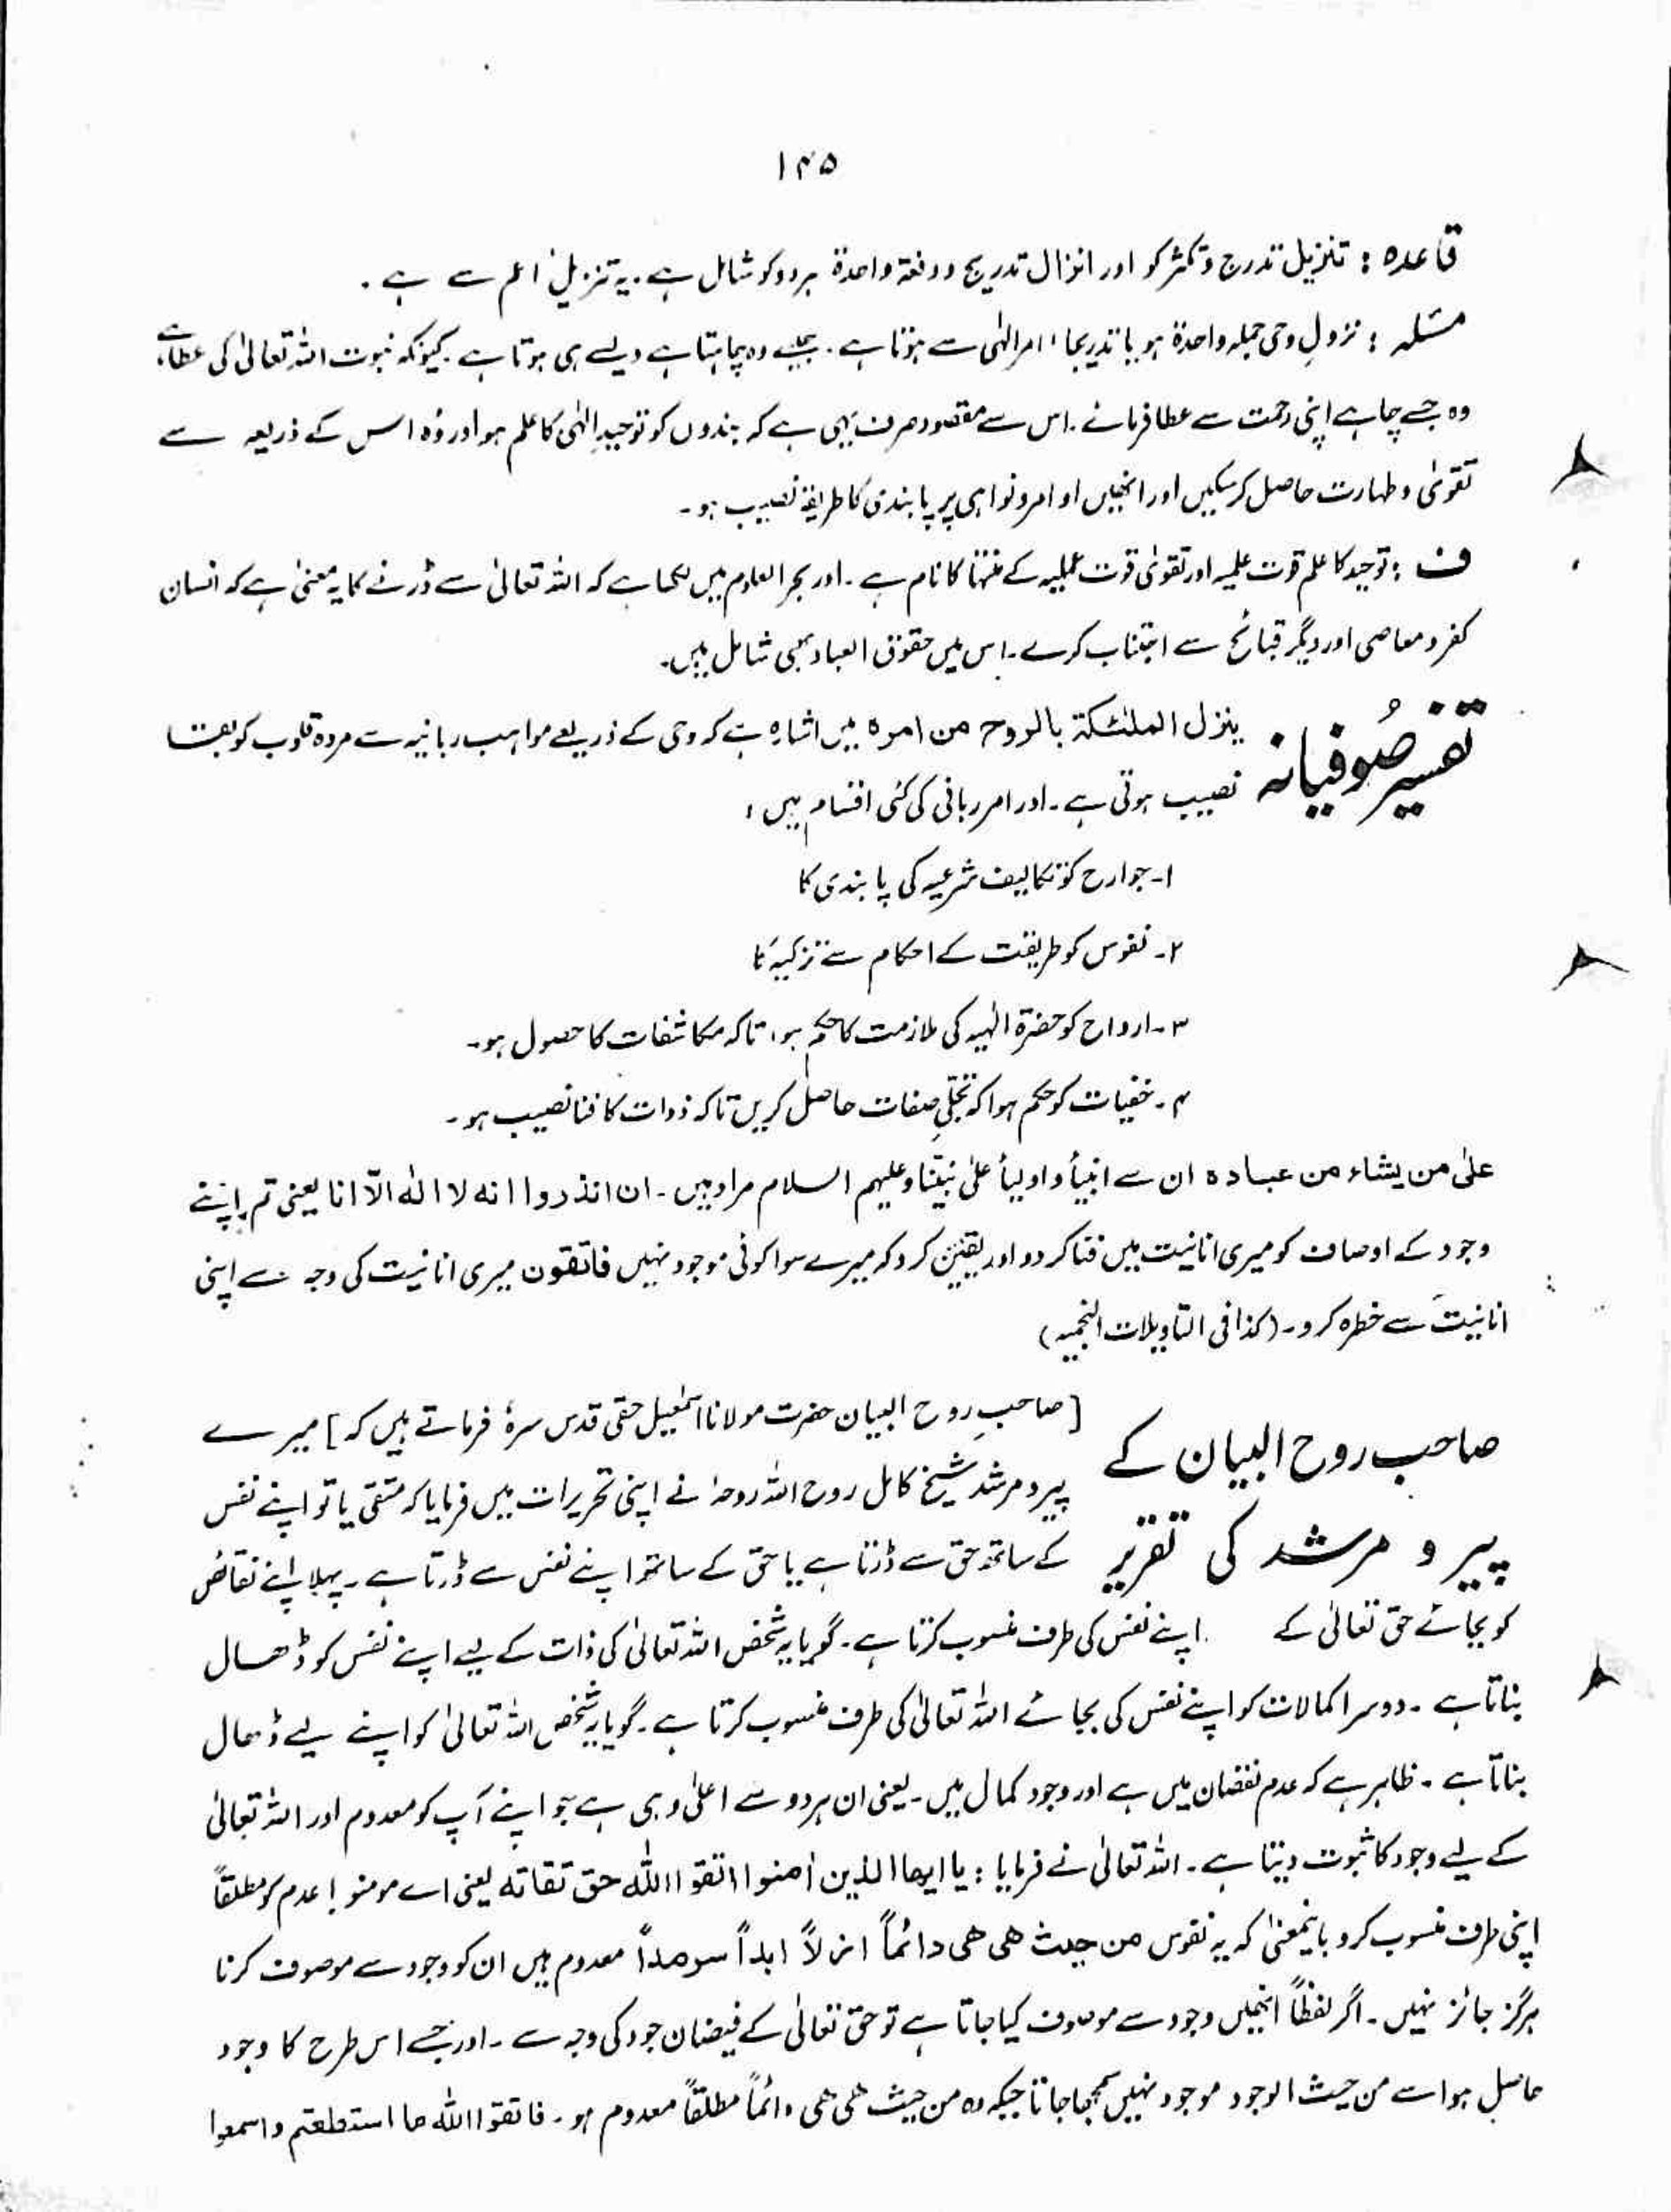 ۱۴۵
قاعدہ : تنزیل تدرج و تکثر کو اور انزال تدریج و دفعۃ واحدۃ ہردو کو شامل ہے ۔ یہ تنزیل اعم سے ہے ۔
مسئلہ : نزولِ وحی جملہ واحدۃ ہو یا تدریجا، امر الٰہی سے ہوتا ہے ۔ جیسے وہ چاہتا ہے ویسے ہی ہوتا ہے ۔ کیونکہ نبوت اللہ تعالیٰ کی عطا ہے،
وہ جسے چاہے اپنی رحمت سے عطا فرمائے ۔ اس سے مقصود صرف یہی ہے کہ بندوں کو توحیدِ الٰہی کا علم ہو اور وُہ اس کے ذریعہ سے
تقویٰ و طہارت حاصل کرسکیں اور انھیں اوامر و نواہی پر پابندی کا طریقہ نصیب ہو ۔
ف : توحید کا علم قوت علمیہ اور تقویٰ قوت عملیہ کے منتہا کا نام ہے ۔ اور بحر العلوم میں لکھا ہے کہ اللہ تعالیٰ سے ڈرنے کا یہ معنیٰ ہے کہ انسان
کفر و معاصی اور دیگر قبائح سے اجتناب کرے ۔ اس میں حقوق العباد بھی شامل ہیں ۔
تفسیر صُوفیانہ ینزل الملٰئکۃ بالروح من امرہ میں اشارہ ہے کہ وحی کے ذریعے مواہب ربانیہ سے مردہ قلوب کو بقا
نصیب ہوتی ہے ۔ اور امر ربانی کی کئی اقسام ہیں :
۱۔ جوارح کو تکالیف شرعیہ کی پابندی کا
۲۔ نفوس کو طریقت کے احکام سے تزکیہ کا
۳۔ ارواح کو حضرۃ الٰہیہ کی ملازمت کا حکم ہو، تاکہ مکاشفات کا حصول ہو ۔
۴۔ خفیات کو حکم ہوا کہ تجلّیِ صفات حاصل کریں تاکہ ذوات کا فنا نصیب ہو ۔
علیٰ من یشاء من عبادہ ان سے انبیأ و اولیأ علیٰ نبیّنا وعلیہم السلام مراد ہیں ۔ ان انذروا انہ لا الٰہ الّا انا یعنی تم اپنے
وجود کے اوصاف کو میری انانیت میں فنا کر دو اور یقین کرو کہ میرے سوا کوئی موجود نہیں فاتقون میری انانیت کی وجہ سے اپنی
انانیت سے خطرہ کرو ۔ (کذا فی التاویلات النجمیہ)
صاحب روح البیان کے [صاحبِ روح البیان حضرت مولانا اسمٰعیل حقی قدس سرہٗ فرماتے ہیں کہ] میرے
پیر و مرشد شیخ کامل روح اللہ روحہٗ نے اپنی تحریرات میں فرمایا کہ متقی یا تو اپنے نفس
پیر و مرشد کی تقریر کے ساتھ حق سے ڈرتا ہے یا حق کے ساتھ اپنے نفس سے ڈرتا ہے ۔ پہلا اپنے نقائص
کو بجائے حق تعالیٰ کے اپنے نفس کی طرف منسوب کرتا ہے ۔ گویا یہ شخص اللہ تعالیٰ کی ذات کے لیے اپنے نفس کو ڈھال
بناتا ہے ۔ دوسرا کمالات کو اپنے نفس کی بجائے اللہ تعالیٰ کی طرف منسوب کرتا ہے ۔ گویا یہ شخص اللہ تعالیٰ کو اپنے لیے ڈھال
بناتا ہے ۔ ظاہر ہے کہ عدم نقصان میں ہے اور وجود کمال میں ۔ یعنی ان ہردو سے اعلیٰ وہی ہے جو اپنے آپ کو معدوم اور اللہ تعالیٰ
کے لیے وجود کا ثبوت دیتا ہے ۔ اللہ تعالیٰ نے فرمایا : یا ایھا الذین اٰمنوا اتقوا اللہ حق تقاتہ یعنی اے مومنو ! عدم کو مطلقاً
اپنی طرف منسوب کرو باینمعنیٰ کہ یہ نفوس من حیث ھی ھی دائماً ازلاً ابداً سرمداً معدوم ہیں ان کو وجود سے موصوف کرنا
ہرگز جائز نہیں ۔ اگر لفظاً انھیں وجود سے موصوف کیا جاتا ہے تو حق تعالیٰ کے فیضان جود کی وجہ سے ۔ اور جسے اس طرح کا وجود
حاصل ہو اسے من حیث الوجود موجود نہیں سمجھا جاتا جبکہ وہ من حیث ھی ھی دائماً مطلقاً معدوم ہو ۔ فاتقوا اللہ ما استطعتم واسمعوا